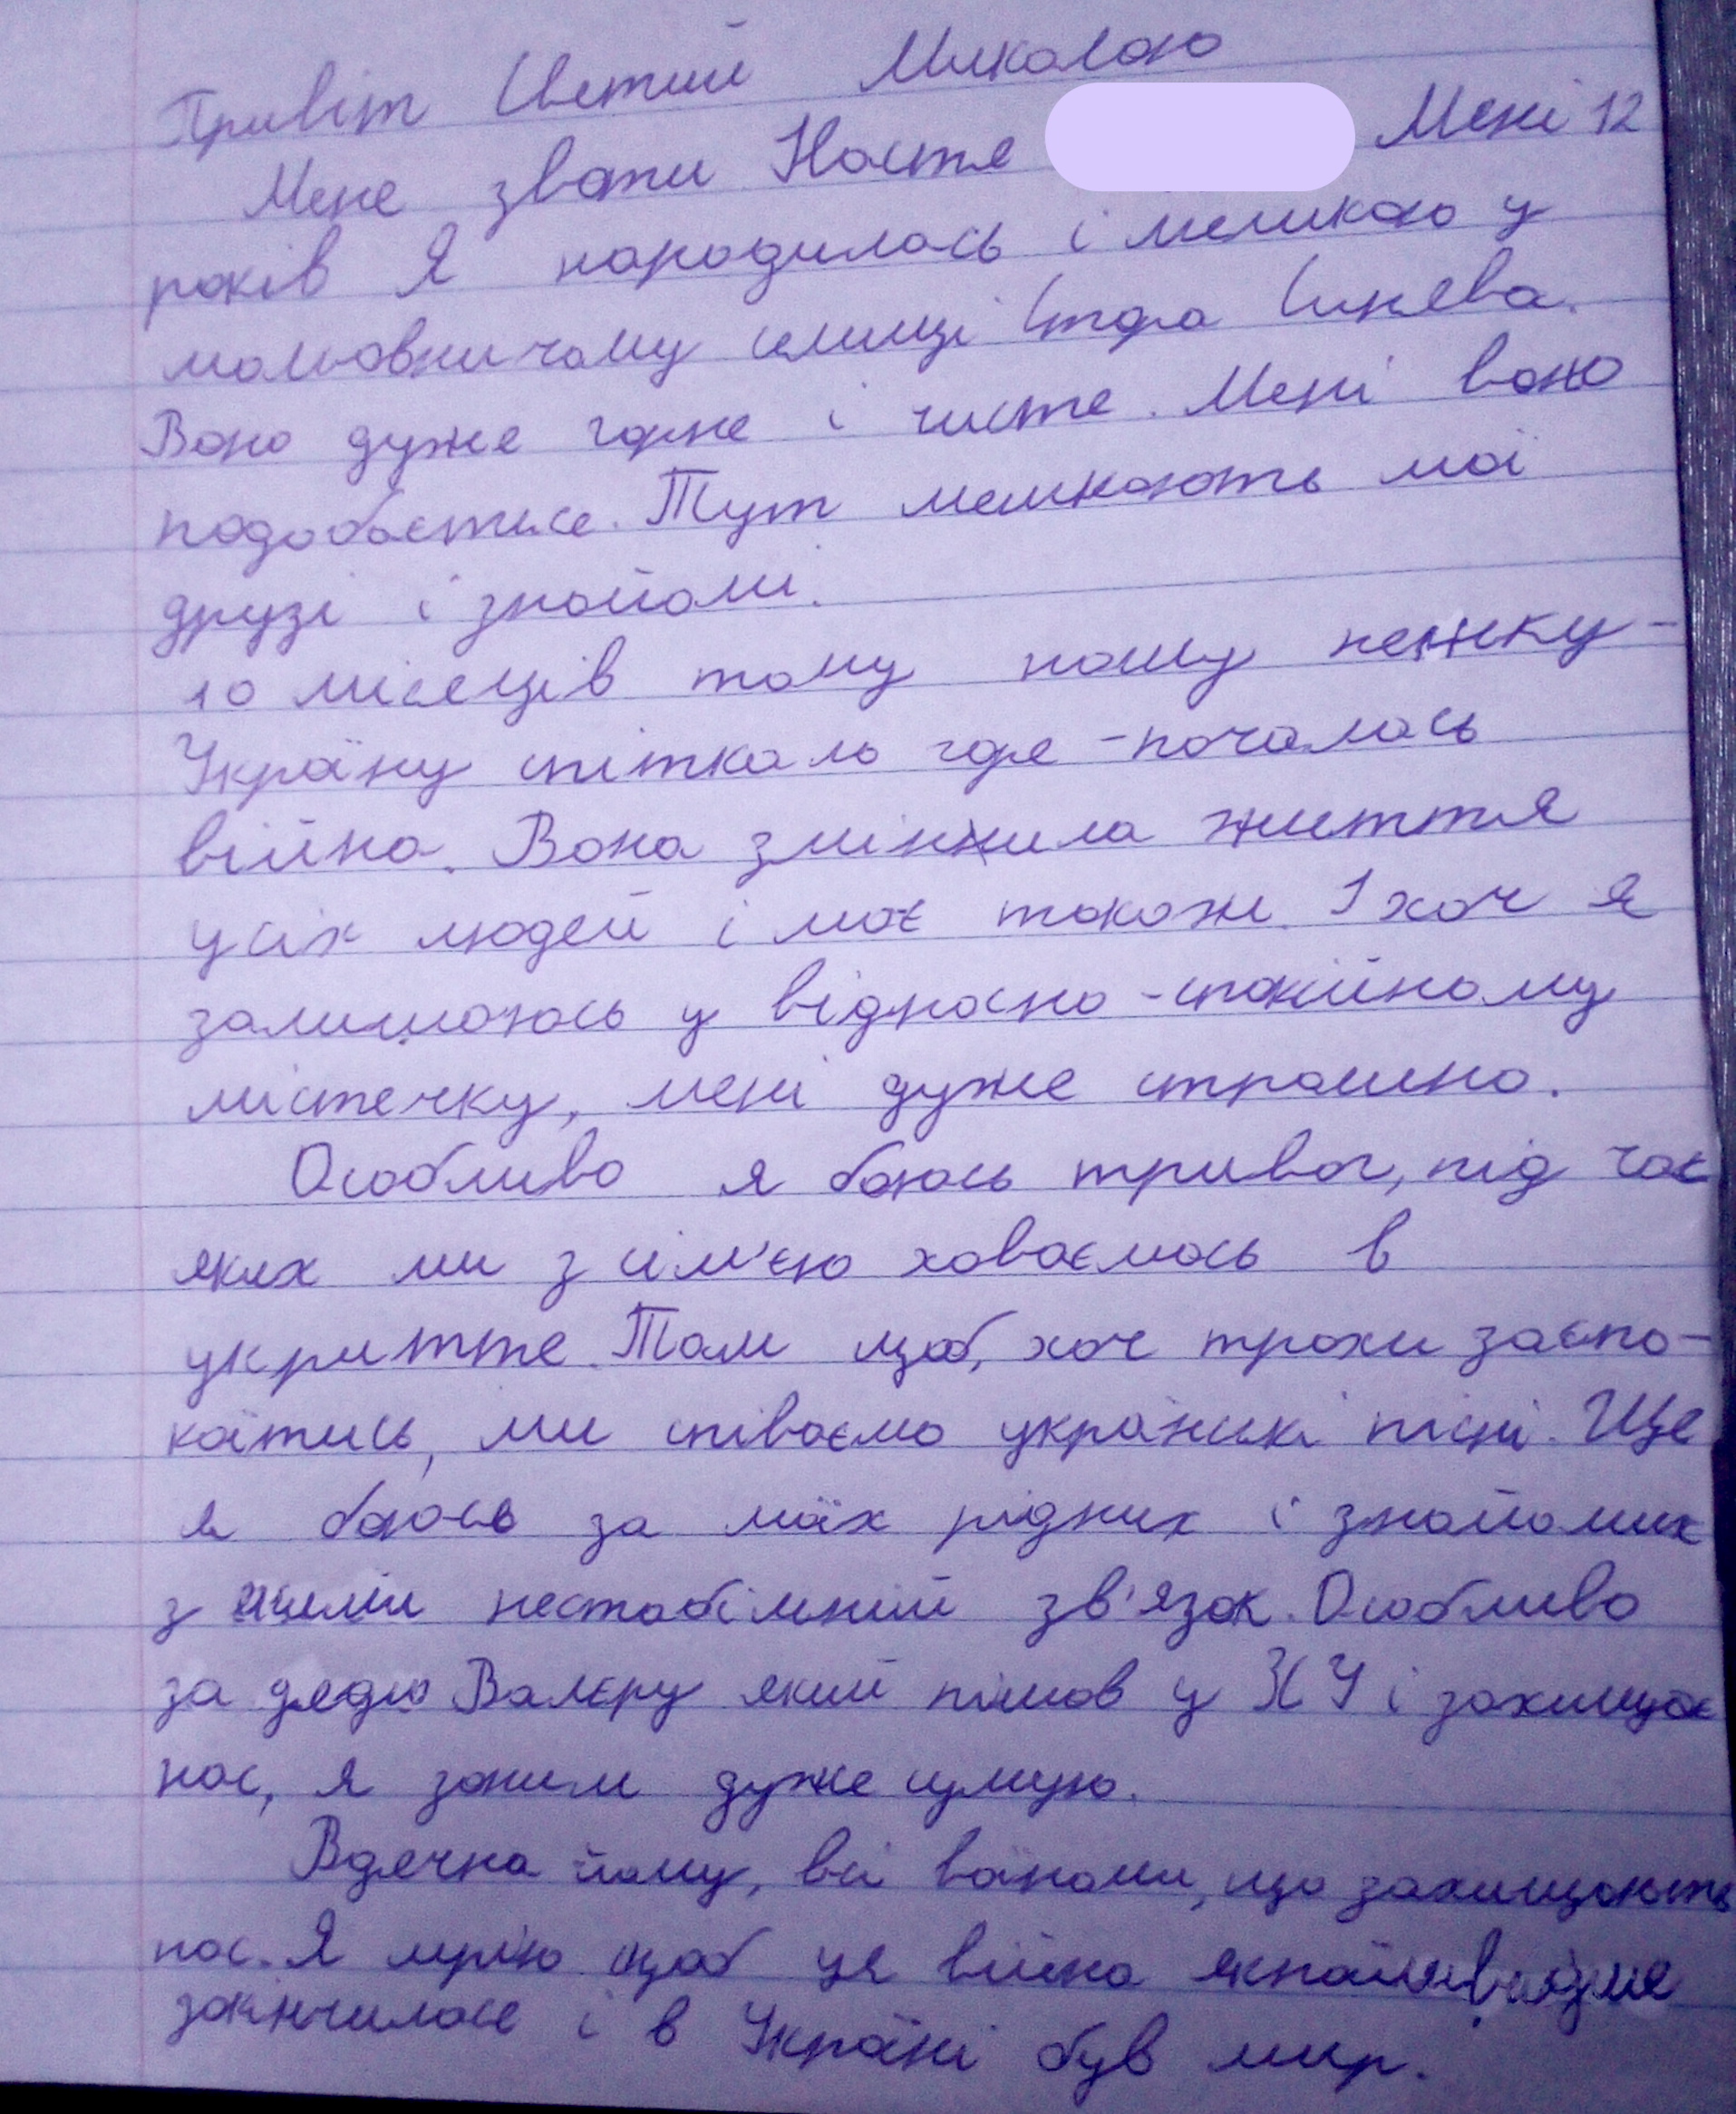 Привіт Светий Миколаю
Мене звати Настя Мені 12
років Я народилась і мешкаю у
мальовничому селищі Стара Синява.
Воно дуже гарне і чисте. Мені воно
подобається. Тут мешкають мої
друзі і знайомі.
10 місяців тому нашу неньку-
Україну спіткало горе - почалась
війна. Вона змінила життя
усіх людей і моє також. І хоч я
залишаюсь у відносно-спокійному
містечку, мені дуже страшно.
Особливо я боюсь тривог, під час
яких ми з сім'єю ховаємось в
укриття. Там щоб, хоч трохи заспо-
коїтись, ми співаємо українські пісні. Ще
я боюсь за моїх рідних і знайомих
з ними нестабільний зв'язок. Особливо
за дядю Валєру який пішов у ЗСУ і захищає
нас, я заним дуже сумую.
Вдячна йому, всі воїнами, що захищають
нас. Я мрію щоб ця війна якнайшвидше
закінчилася і в Україні був мир.